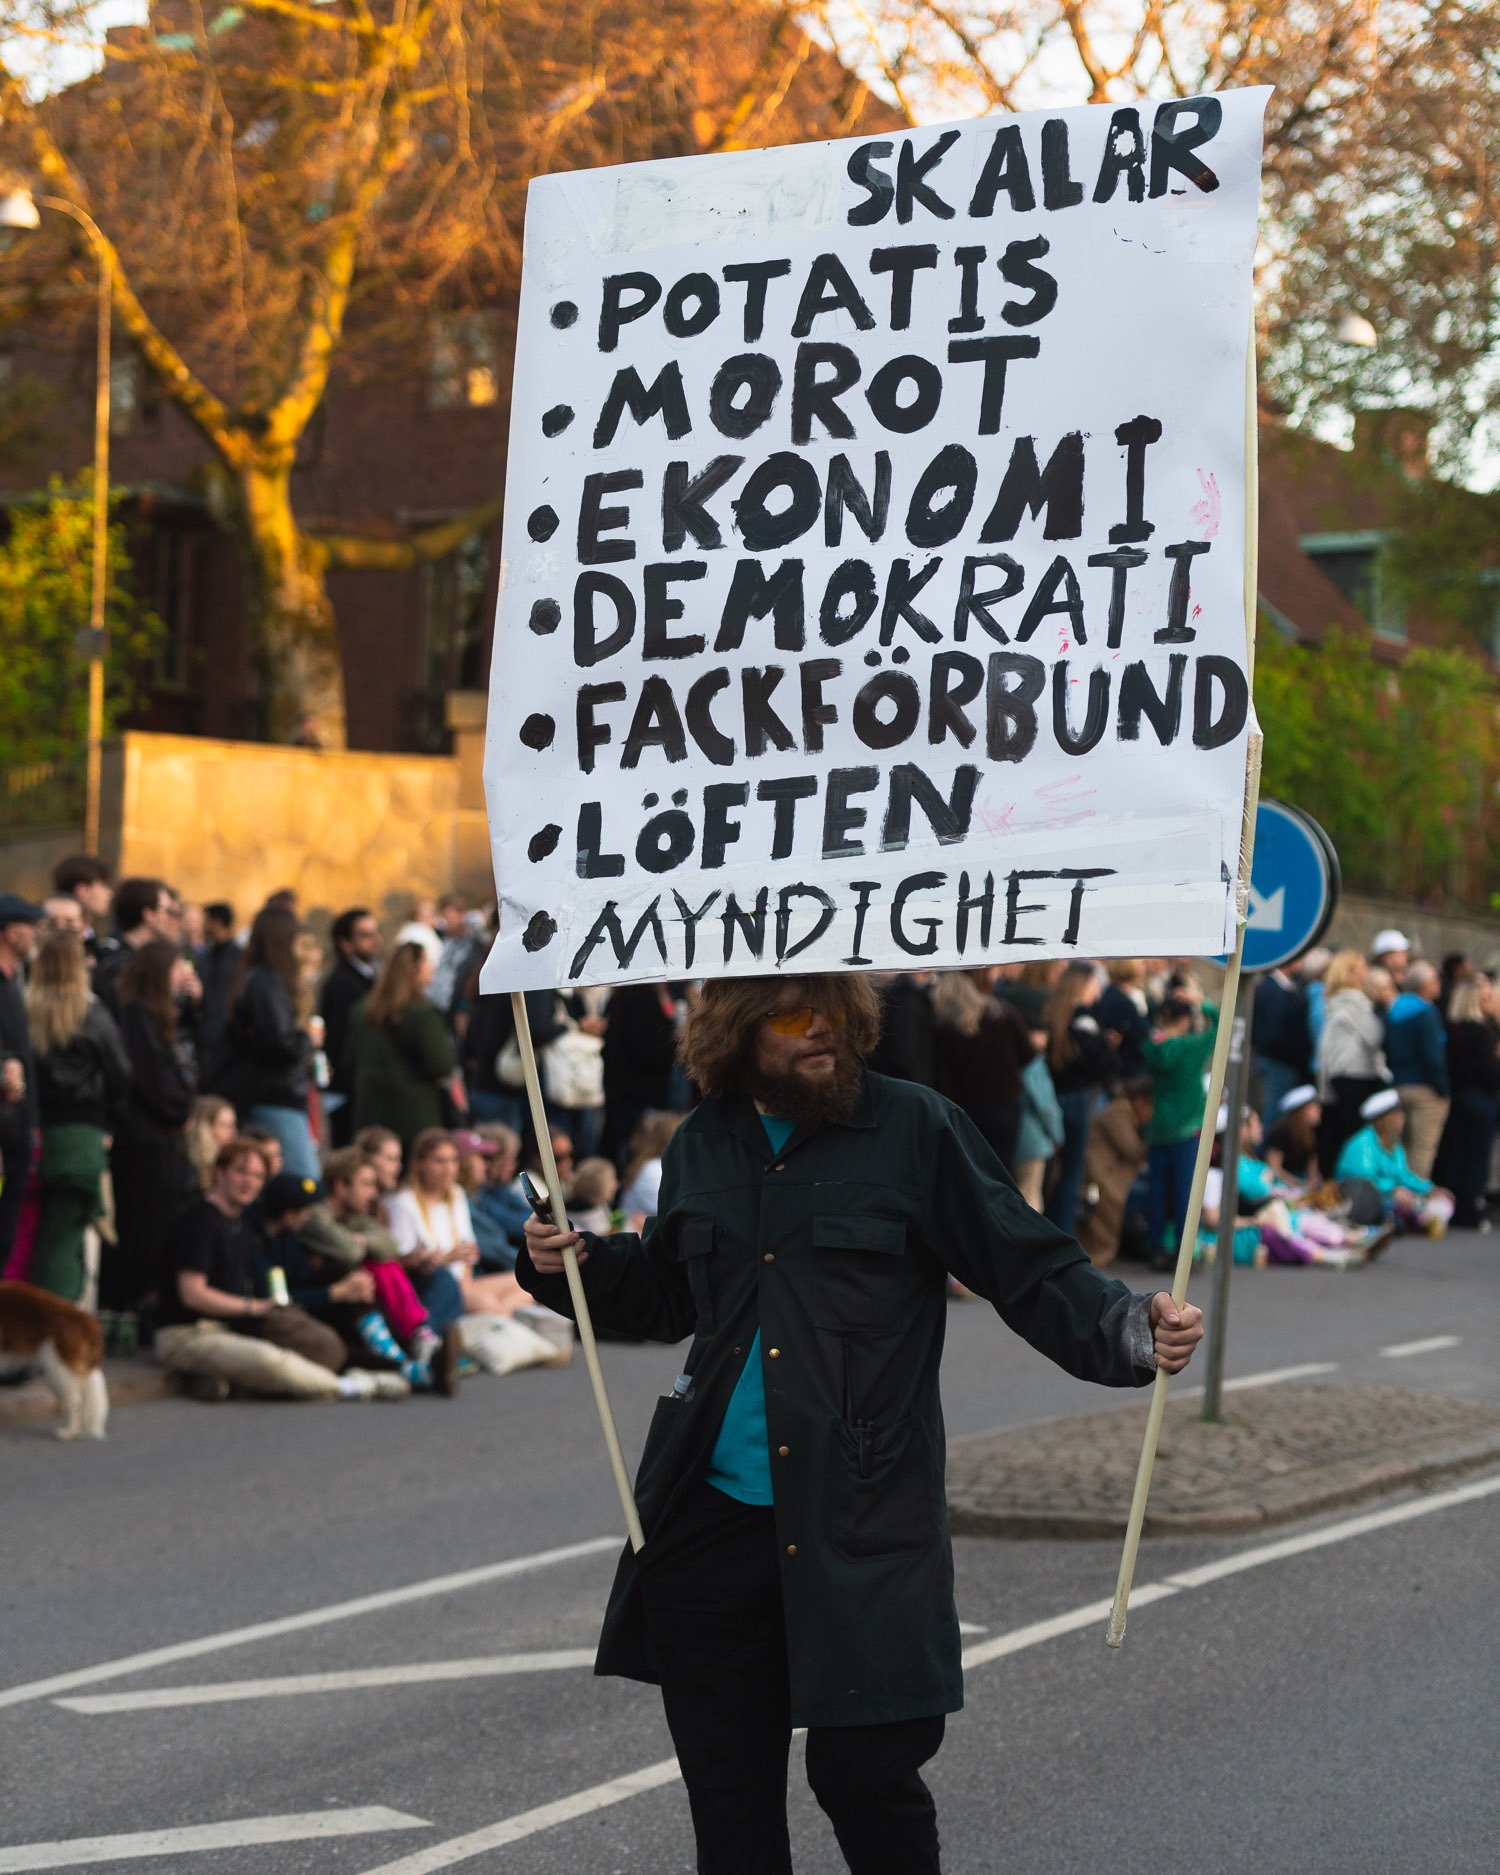 SKALAR
• POTATIS
• MOROT
• EKONOMI
• DEMOKRATI
• FACKFÖRBUND
• LÖFTEN
• MYNDIGHET